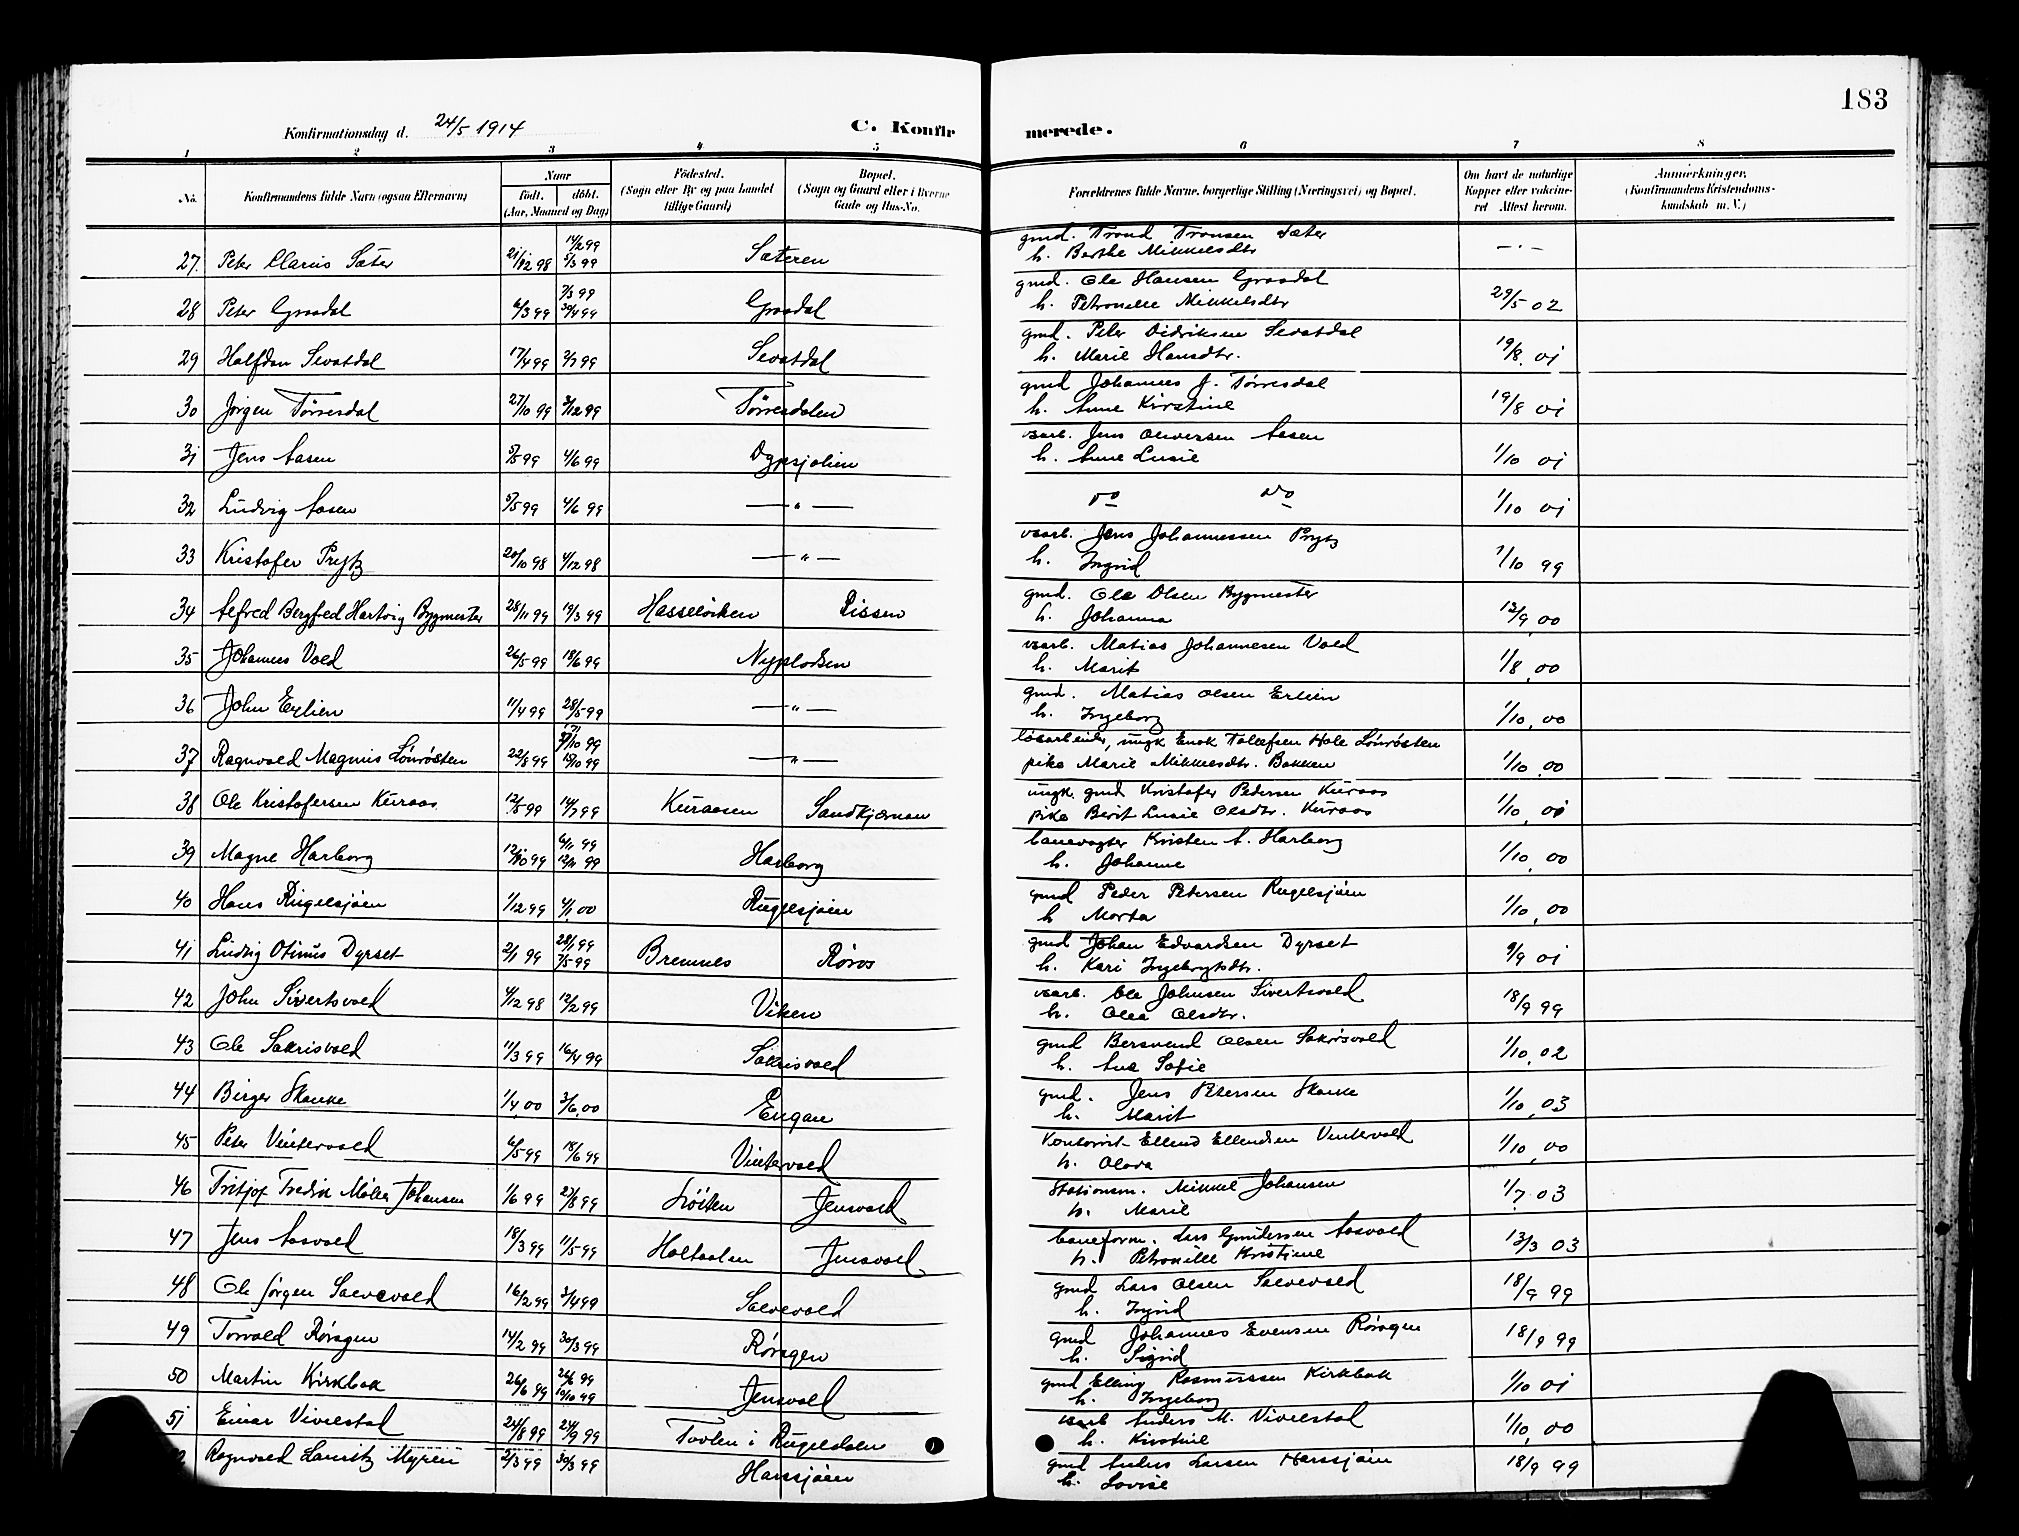 183
Konfirmationsdag d. 24/5 1914 C. Konfir merede.
1 2 3 4 5 6 7 8
No. Konfirmandens fulde Navn (ogsaa Efternavn) Naar født. døbt. (Aar, Maaned og Dag) Fødested. (Sogn eller By og paa Landet tillige Gaard) Bopæl. (Sogn og Gaard eller i Byerne Gade og Hus-No. Forældrenes fulde Navne, borgerlige Stilling (Næringsvei) og Bopæl. Om havt de naturlige Kopper eller vakcineret Attest herom. Anmerkninger. (Konfirmandens Kristendomskundskab m. V.)
27. Peter Clarius Sæter 21/12 98 14/2 99 5/3 99 Sæteren gmd. Trond Tronsen Sæter — · —
h. Berthe Mikkelsdtr
28 Peter Graadal 6/3 99 7/3 99 30/4 99 Graadal gmd. Ole Hansen Graadal 29/5 02
h. Petronelle Mikkelsdtr
29 Halfdan Sevatdal 17/4 99 2/7 99 Sevatdal gmd. Peter Didriksen Sevatdal 19/8. 01
h. Marie Hansdtr.
30 Jørgen Tørresdal 27/10 99 3/12 99 Tørresdalen gmd Johannes J. Tørresdal 19/8 01
h. Anne Kirstine
31 Jens Aasen 5/5 99 4/6 99 Jens Oliversen Aasen 1/10 01
h. Anne Lusie
32 Ludvig Aasen 5/5 99 4/6 99 — " — do do 1/10 01
33 Kristofer Prytz 20/10 98 4/12 98 — " — Jens Johannessen Prytz 1/10 99
h. Ingrid
34 Alfred Bergfred Hartvig Bygmester 28/11 99 19/3 99 Rissen gmd. Ole Olsen Bygmester 12/9 00
h. Johanna
35 Johannes Vold 26/5 99 18/6 99 Nyplodsen Matias Johannesen Vold 1/8 00
h. Marit
36 John Erlien 11/4 99 28/5 99 — " — gmd. Matias Olsen Erlien 1/10, 00
h. Ingeborg
37 Ragnvald Magnus Lønrøsten 22/8 99 — " — løsarbeider, ungk Enok Tollefsen Hole Lønrøsten 1/10, 00
pike Marie Mikkelsdtr. Bakken
38 Ole Kristofersen Kuraas 12/5 99 14/7 99 Kuraasen Sandkjærnan ungk. gmd Kristofer Pedersen Kuraas 1/10, 01
pike Berit Lusie Olsdtr. Kuraas
39 Magne Harborg 12/10 99 6/11 99 12/11 99 Harborg banevogter Kristen A. Harborg 1/10, 00
h. Johanne
40 Hans Rugelsjøen 1/12 99 4/1, 00 Rugelsjøen gmd Peder Petersen Rugelsjøen 1/10, 00
h Marta
41 Ludvig Otinus Dyrset 2/1 99 28/1 99 7/5 99 Bremnes Røros gmd Johan Edvardsen Dyrset 9/9 01
h. Kari Ingebrigtsdtr.
42 John Sivertsvold 4/12 98 12/2 99 Viken Ole Johnsen Sivertsvold 18/9 99
h. Olea Olsdtr.
43 Ole Sakrisvold 11/3 99 16/4 99 Sakrisvold gmd Bersvend Olsen Sakrisvold 1/10, 02
h. Ane Sofie
44 Birger Skanke 1/4, 00 3/6, 00 Engan gmd. Jens Petersen Skanke 1/10, 03
h. Marit
45 Peter Vintervold 6/5 99 18/6 99 Vintervold Kontorist Ellend Ellendsen Vintervold 1/10, 00
h. Olava
46 Fritjof Fredrik Møller Johansen 1/6 99 27/8 99 Jensvold Stationsm. Mikkel Johansen 1/7 03
h. Marie
47 Jens Aasvold 18/3 99 11/5 99 Holtaalen Jensvold baneform. Lars Gundersen Aasvold 13/3 03
h. Petronille Kristine
48 Ole Jørgen Salvevold 16/2 99 3/4 99 Salvevold gmd Lars Olsen Salvevold 18/9 99
h. Ingrid
49 Torvald Røragen 14/2 99 30/3 99 Røragen gmd Johannes Evensen Røragen 18/9 99
h. Sigrid
50 Martin Kirkbak 26/6 99 26/6 99 Jensvold gmd Elling Rasmussen Kirkbak 1/10 01
h. Ingeborg
51 Einar Vivelstad 24/8 99 24/9 99 Tovlen i Rugeldalen Anders M. Vivelstad 1/10, 00
h. Kirstine
Ragnvald Lauritz Myren 2/3 99 30/3 99 Harssjøen gmd Anders Larsen Harssjøen 18/9 99
h. Lovise